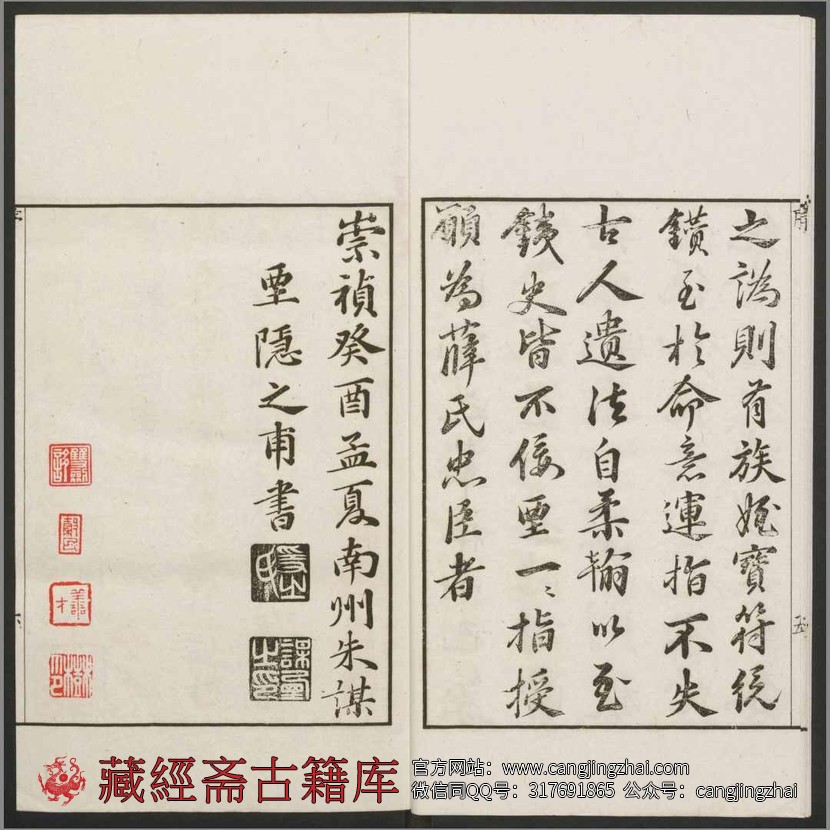 之譌則有族姪寶符統
至於命意運指不失
古人遺法自柔翰以至
鐵史皆不佞垔一〻指授
願為薛氏忠臣者
崇禎癸酉孟夏南州朱謀
垔隱之甫書
謀垔之印
藏經斋古籍库
官方网站：www.cangjingzhai.com
微信同QQ号：317691865 公众号：cangjingzhai